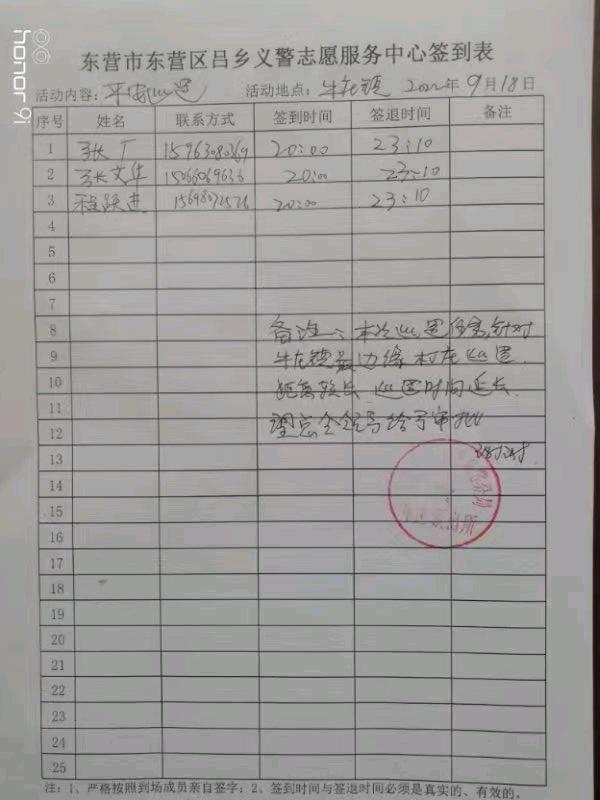 honor 9i
东营市东营区吕乡义警志愿服务中心签到表
活动内容：平安巡逻 活动地点：牛庄镇 2022年9月18日
序号 姓名 联系方式 签到时间 签退时间 备注
1 20:00 23:10
2 张文华 20:00 23:10
3 程跃进 20:00 23:10
4
5
6
7
8
9
10
11
12
13
14
15
16
17
18
19
20
21
22
23
24
25
备注：本次巡逻任务，针对
牛庄镇最边缘村庄巡逻
距离较长 巡逻时间延长
望总会领导给予审批
谢谢
派出所
注：1、严格按照到场成员亲自签字；2、签到时间与签退时间必须是真实的、有效的。